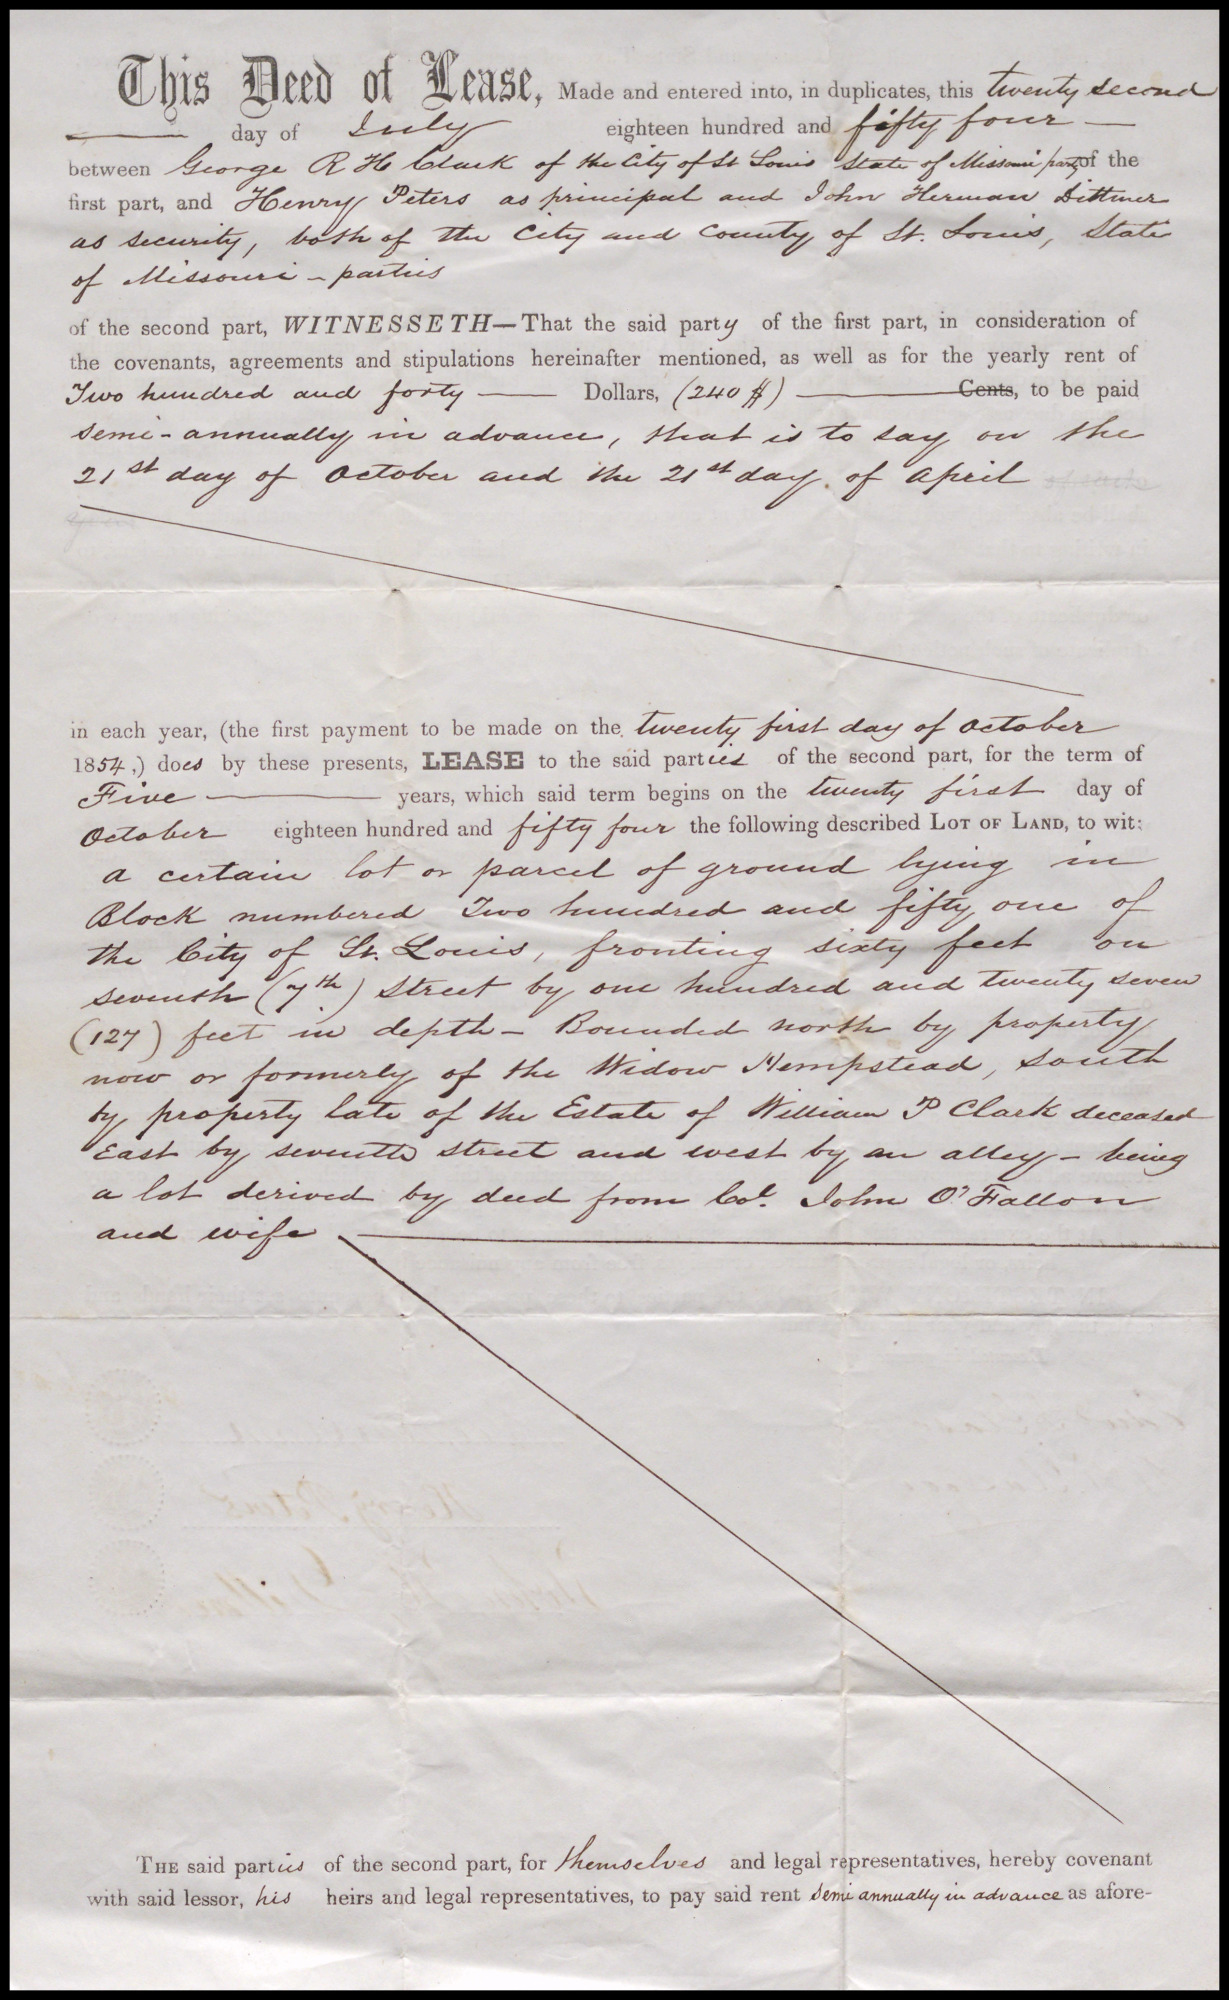 This Deed of Lease, Made and entered into, in duplicates, this twenty second
day of July eighteen hundred and fifty four
between George R H Clark of the City of St Louis State of Missouri party of the
first part, and Henry Peters as principal and John Herman Dittmer
as security, both of the City and County of St. Louis, State
of Missouri - parties
of the second part, WITNESSETH—That the said party of the first part, in consideration of
the covenants, agreements and stipulations hereinafter mentioned, as well as for the yearly rent of
Two hundred and forty — Dollars, (240 $) — Cents, to be paid
semi-annually in advance, that is to say on the
21st day of October and the 21st day of April
in each year, (the first payment to be made on the twenty first day of October
1854,) does by these presents, LEASE to the said parties of the second part, for the term of
Five — years, which said term begins on the twenty first day of
October eighteen hundred and fifty four the following described LOT OF LAND, to wit:
a certain lot or parcel of ground lying in
Block numbered Two hundred and fifty one of
the City of St. Louis, fronting sixty feet on
seventh (7th) Street by one hundred and twenty seven
(127) feet in depth - Bounded north by property
now or formerly of the Widow Hempstead, south
by property late of the Estate of William P Clark deceased
East by seventh street and west by an alley - being
a lot derived by deed from Col. John O'Fallon
and wife
THE said parties of the second part, for themselves and legal representatives, hereby covenant
with said lessor, his heirs and legal representatives, to pay said rent semi annually in advance as afore-